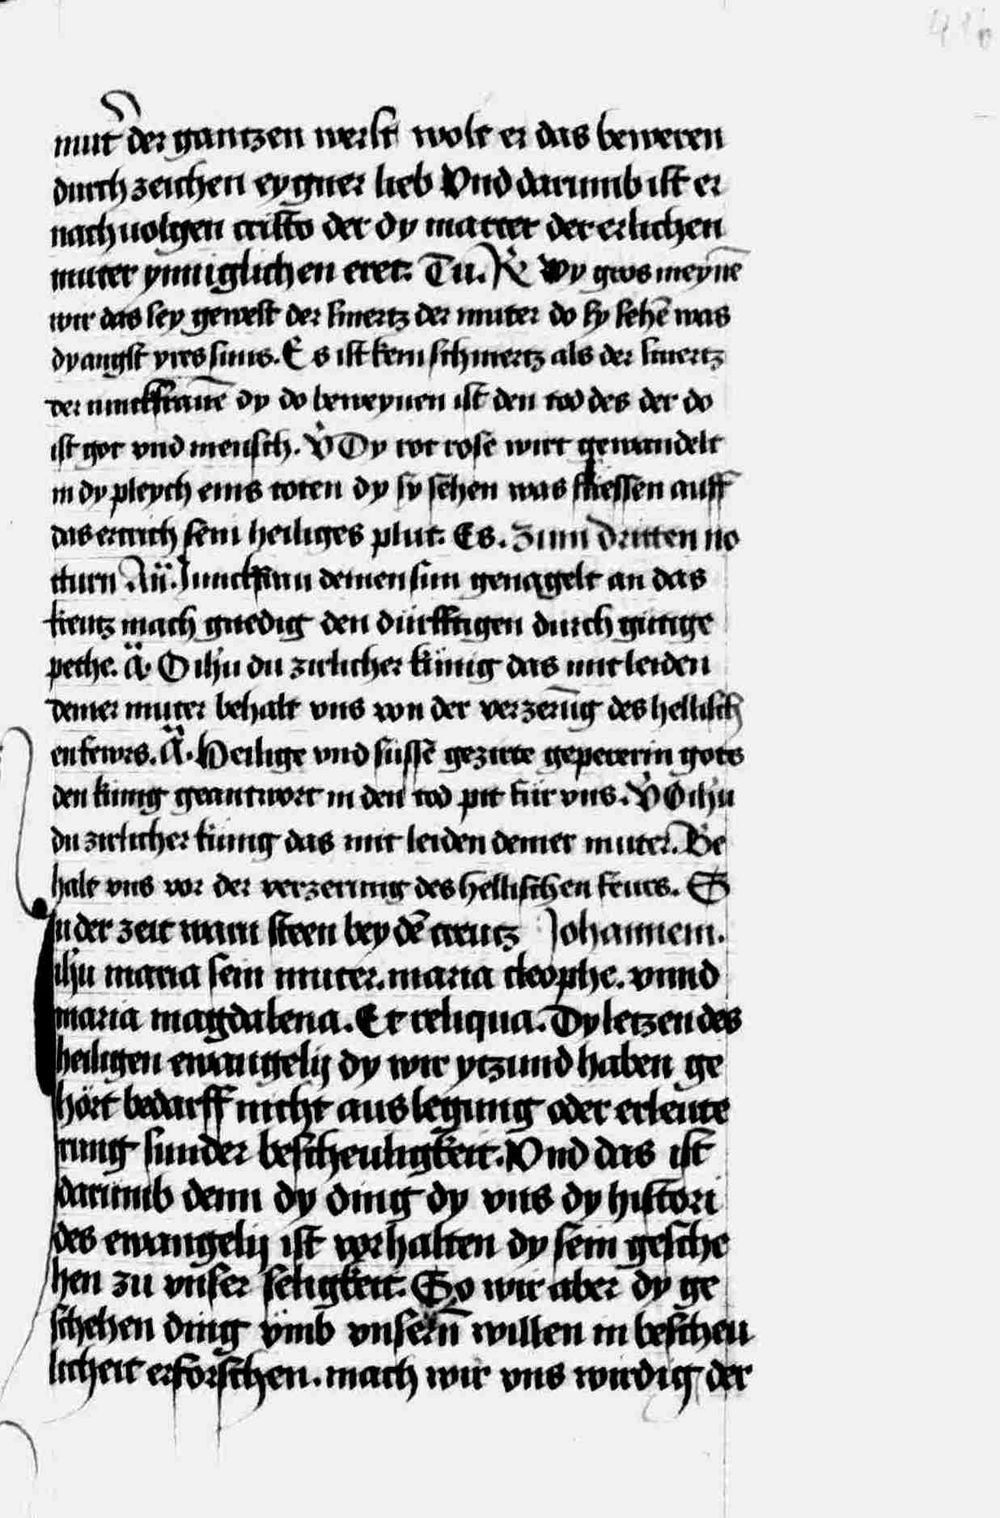 mut̄ der gantzen werlt wolt er das beweren
durch zeichen eygner lieb Vnd darumb ist er
nachuolgen cristo der dy marter der erlichen
muter ynniglichen eret. Tu. R Wy gros meynē
wir das sey gewest der smertz der muter do sy sehē was
dy angst yres suns. Es ist kein schmertz als der smertz
der iunckfrauē dy do beweynen ist den tod des der do
ist got vnd mensch. V Dy rot rose wirt gewandelt
in dy pleych eins toten dy sy sehen was fliessen auff
das ertrich sein heiliges plut. Es. Zum dritten no
cturn Aü. Junckfrau deinen sun genagelt an das
kreutz mach gnedig den dürfftigen durch gütige
pethe. A. O ihu du zirlicher künig das mitleiden
deiner muter behalt vns von der verzerūg des hellisch
en fewrs. A. Heilige vnd süssē gezirte gepererin gots
den künig geantwort in den tod pit für vns. V O ihu
du zirlicher künig das mit leiden deiner muter. Be
halt vns vor der verzerung des hellischen feurs. S
In der zeit warn steen bey dē creutz Johannem.
ihu maria sein muter. maria cleophe. vnnd
maria magdalena. Et reliqua. Dy letzen des
heiligen ewangelij dy wir ytzund haben ge
hört bedarff nicht auslegung oder erleute
rung sunder bescheuligkeit. Vnd das ist
darumb denn dy ding dy vns dy histori
des ewangelij ist vorhalten dy sein gesche
hen zu vnser seligkeit. So wir aber dy ge
schehen ding vmb vnsern̄ willen in bescheu
licheit erforschen. mach wir vns wirdig der